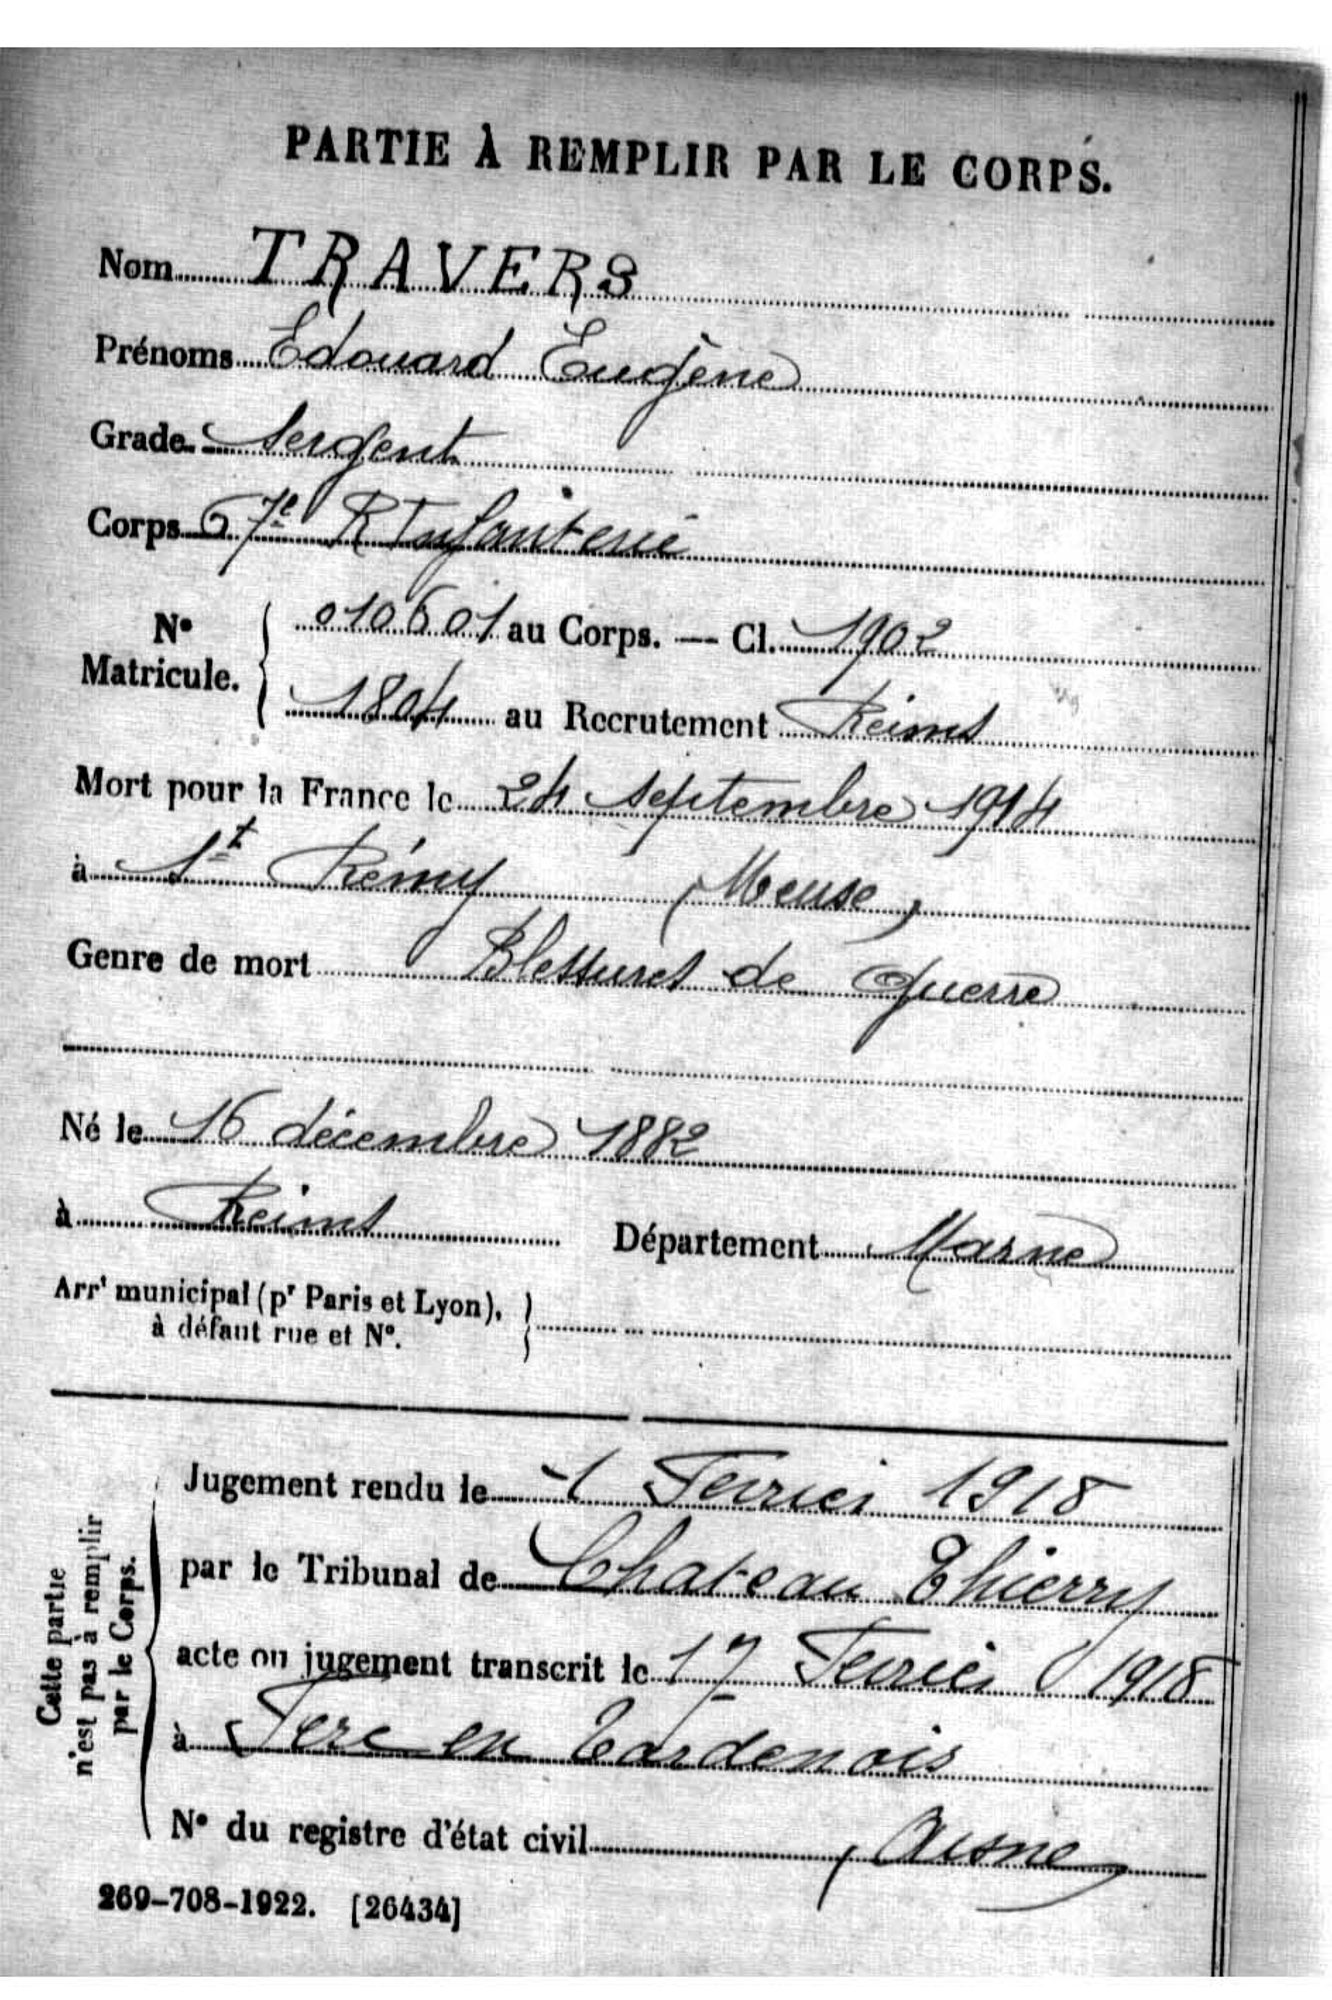 PARTIE À REMPLIR PAR LE CORPS.
Nom TRAVERS
Prénoms Edouard Eugène
Grade Sergent
Corps 67e R Infanterie
N° Matricule. 010601 au Corps. — Cl. 1902
1804 au Recrutement Reims
Mort pour la France le 24 septembre 1914
à St Rémy (Meuse)
Genre de mort Blessures de Guerre
Né le 16 décembre 1882
à Reims Département Marne
Arrt municipal (pr Paris et Lyon),
à défaut rue et N°.
Cette partie
n'est pas à remplir
par le Corps.
Jugement rendu le 1 Fevrier 1918
par le Tribunal de Chateau Thierry
acte ou jugement transcrit le 17 Fevrier 1918
à Fere en Tardenois
N° du registre d'état civil (Aisne
269-708-1922. [26434]